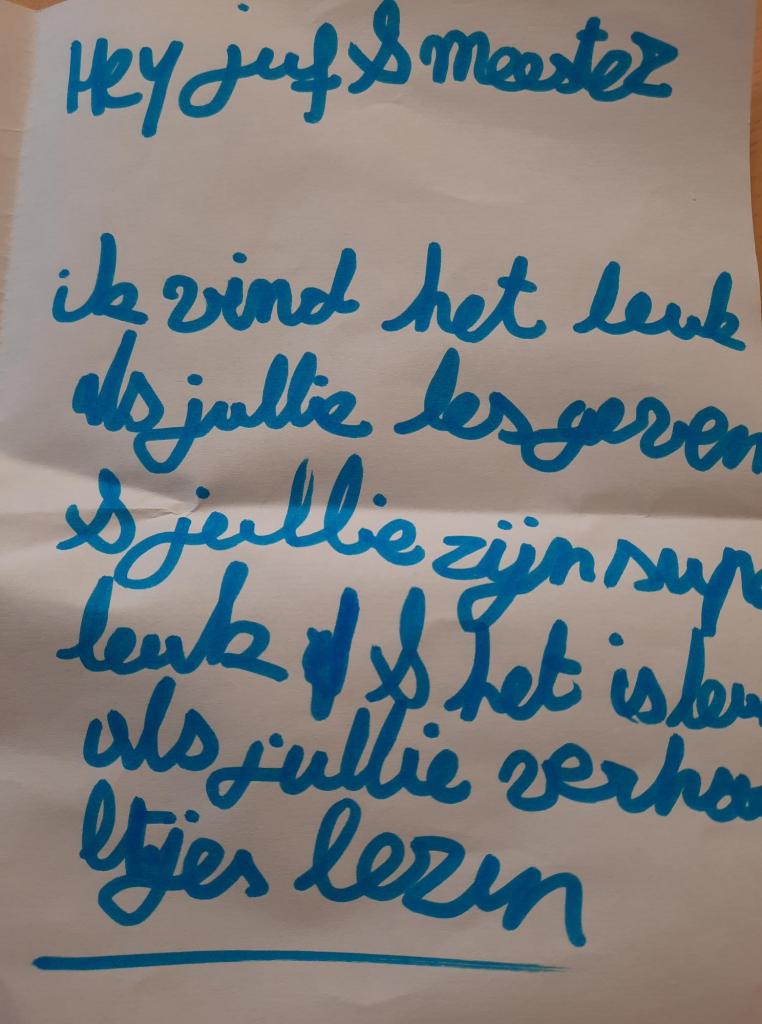 Hey juf & meester
ik vind het leuk
als jullie les geven
& jullie zijn supe
leuk & het is leu
als jullie verhaa
ltjes lezen